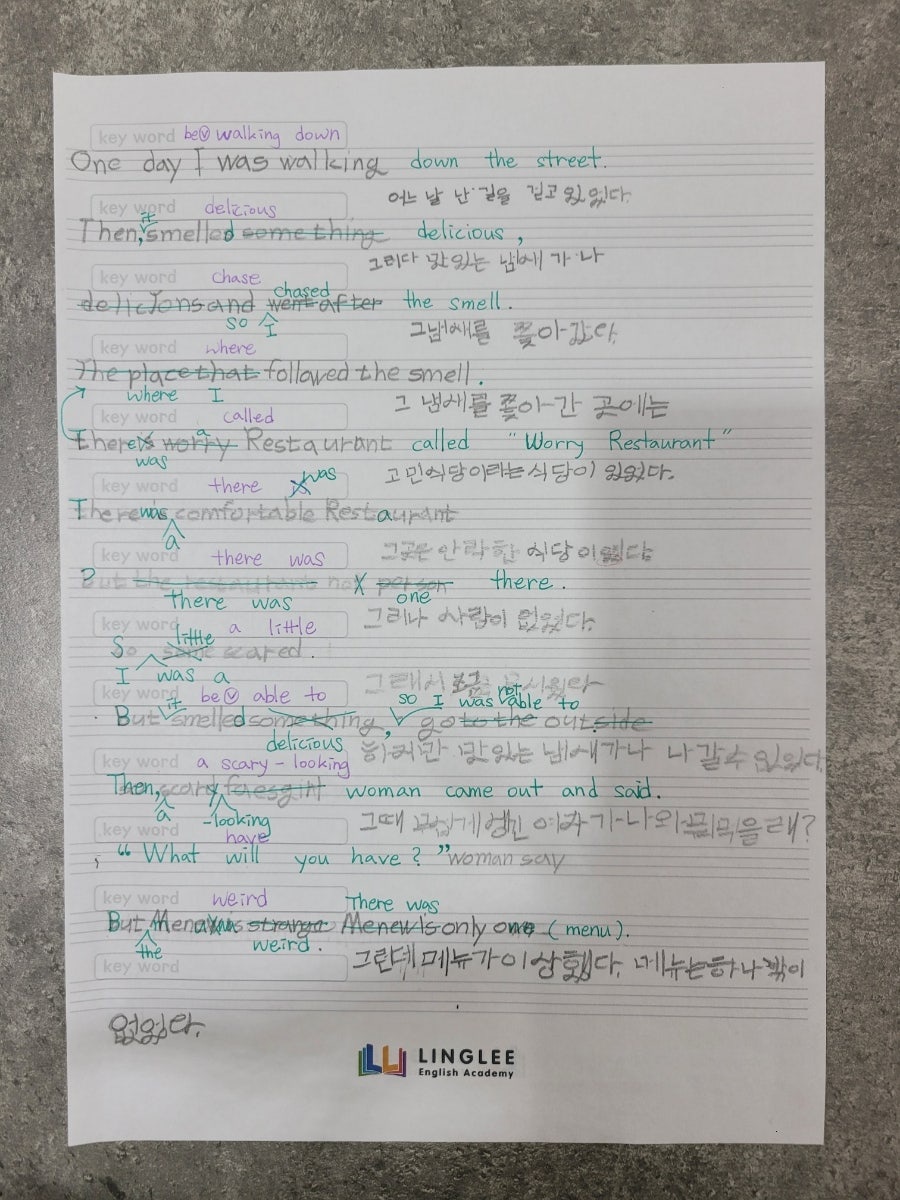 key word be ⓥ walking down
One day I was walking down the street.
어느 날 난 길을 걷고 있었다.
key word delicious
it
Then, smelled something delicious,
그리다 맛있는 냄새가 나
key word chase
chased
delicions and went after the smell.
so I
그냄새를 쫓아갔다.
key word where
The place that followed the smell.
where I
그 냄새를 쫓아간 곳에는
key word called
a
there is worry Restaurant called "Worry Restaurant"
was
고민식당이라는 식당이 있었다.
key word there was
There was comfortable Restaurant
a
그곳은 안락한 식당이었다
key word there was
But the restaurant no person there.
There was one
그러나 사람이 없었다.
key word a little
little
So some scared.
I was a
그래서 조금 무서웠다
key word be ⓥ able to
it so I was not able to
But smelled something, go to the outside
delicious
하지만 맛있는 냄새가나 나갈수 없었다
key word a scary-looking
Then, scary woman came out and said.
a -looking
그때 무섭게생긴 여자가나와
key word have
"What will you have?" woman say
key word weird
There was
But Menew is strange Menew is only one (menu).
the weird.
그런데 메뉴가 이상했다. 메뉴는하나밖이
key word
없었다.
LINGLEE
English Academy